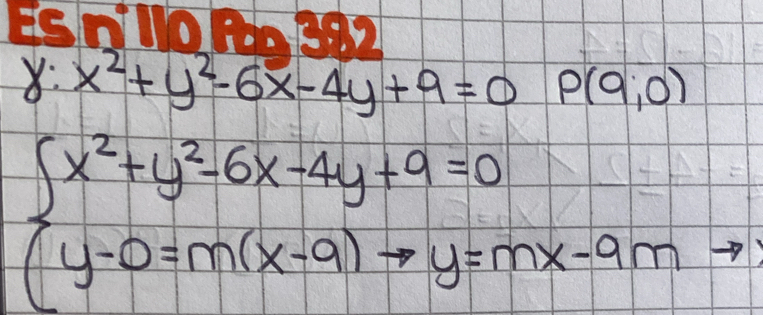 Es n° 110 Pag 382
γ: x²+y²-6x-4y+9=0 P(9;0)
x²+y²-6x-4y+9=0
y-0=m(x-9) → y=mx-9m →